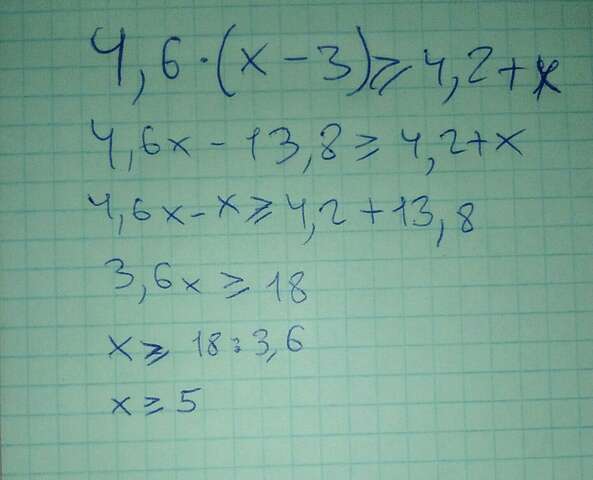 4,6·(x-3)⩾4,2+x
4,6x-13,8⩾4,2+x
4,6x-x⩾4,2+13,8
3,6x⩾18
x⩾18:3,6
x⩾5